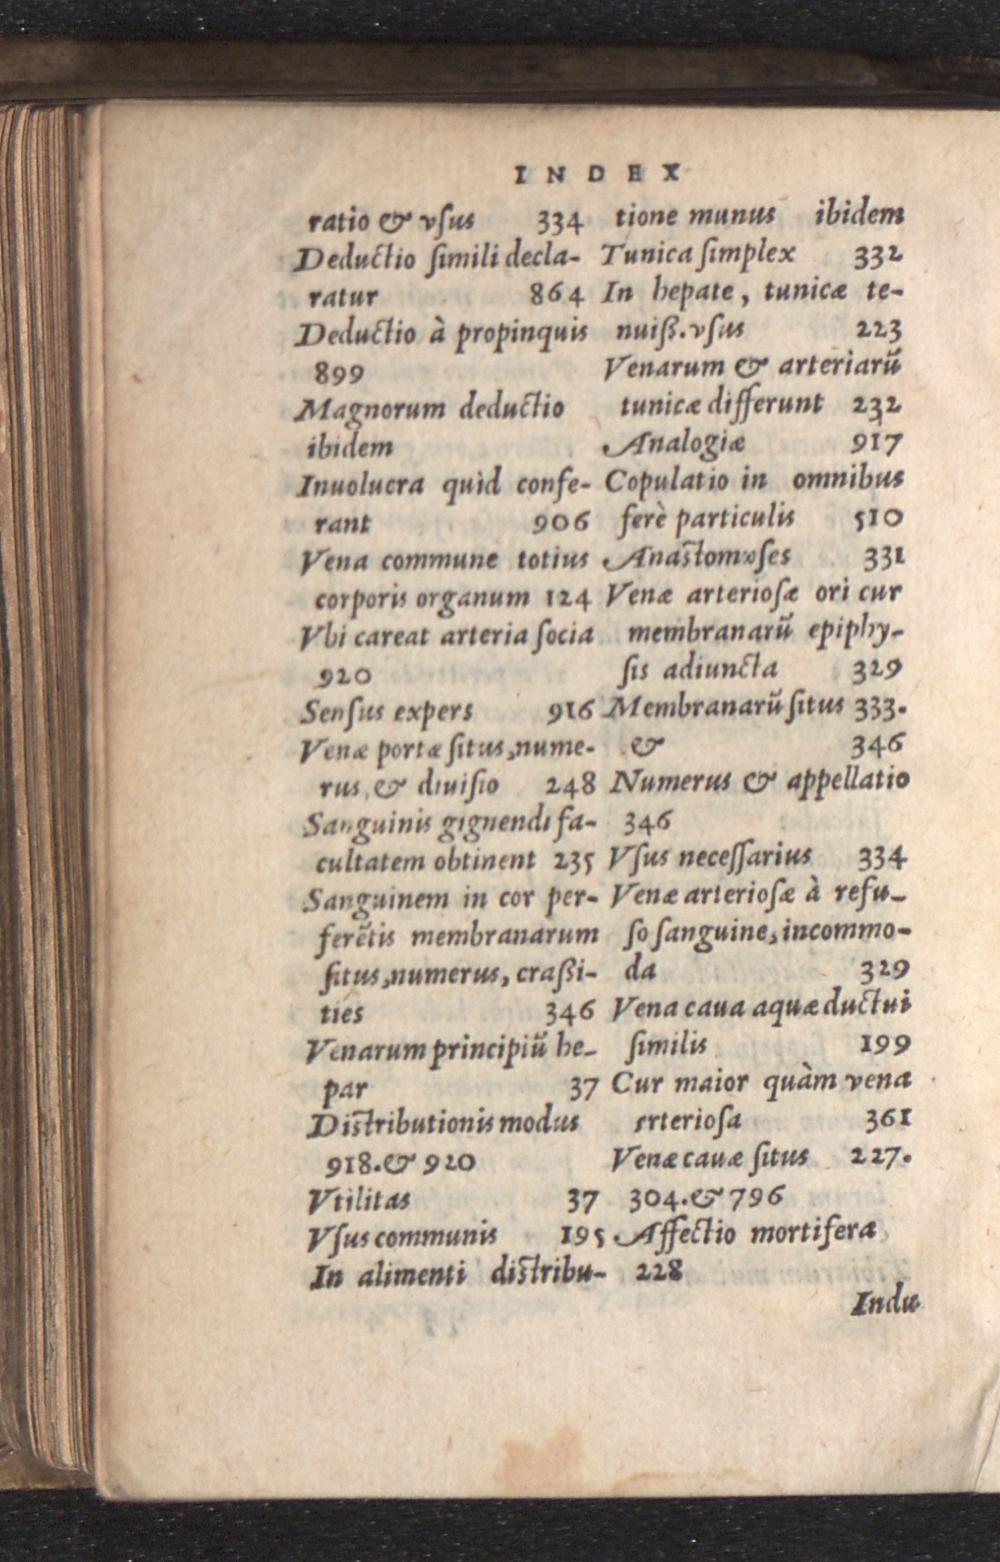 INDEX
ratio & vſus 334
Deductio ſimili decla-
ratur 864
Deductio à propinquis
899
Magnorum deductio
ibidem
Inuolucra quid confe-
rant 906
Vena commune totius
corporis organum 124
Vbi careat arteria ſocia
920
Senſus expers 916
Venæ portæ ſitus, nume-
rus, & diuiſio 248
Sanguinis gignendi fa-
cultatem obtinent 235
Sanguinem in cor per-
ferẽtis membranarum
ſitus, numerus, craßi-
ties 346
Venarum principiũ he-
par 37
Diſtributionis modus
918. & 920
Vtilitas 37
Vſus communis 195
In alimenti diſtribu-
tione munus ibidem
Tunica ſimplex 332
In hepate, tunicæ te-
nuiß. vſus 223
Venarum & arteriarũ
tunicæ differunt 232
Analogiæ 917
Copulatio in omnibus
ferè particulis 510
Anaſtomoſes 331
Venæ arterioſæ ori cur
membranarũ epiphy-
ſis adiuncta 329
Membranarũ ſitus 333.
& 346
Numerus & appellatio
346
Vſus neceſſarius 334
Venæ arterioſæ à refu-
ſo ſanguine, incommo-
da 329
Vena caua aquæ ductui
ſimilis 199
Cur maior quàm vena
erterioſa 361
Venæ cauæ ſitus 227.
304. & 796
Affectio mortifera
228
Indu